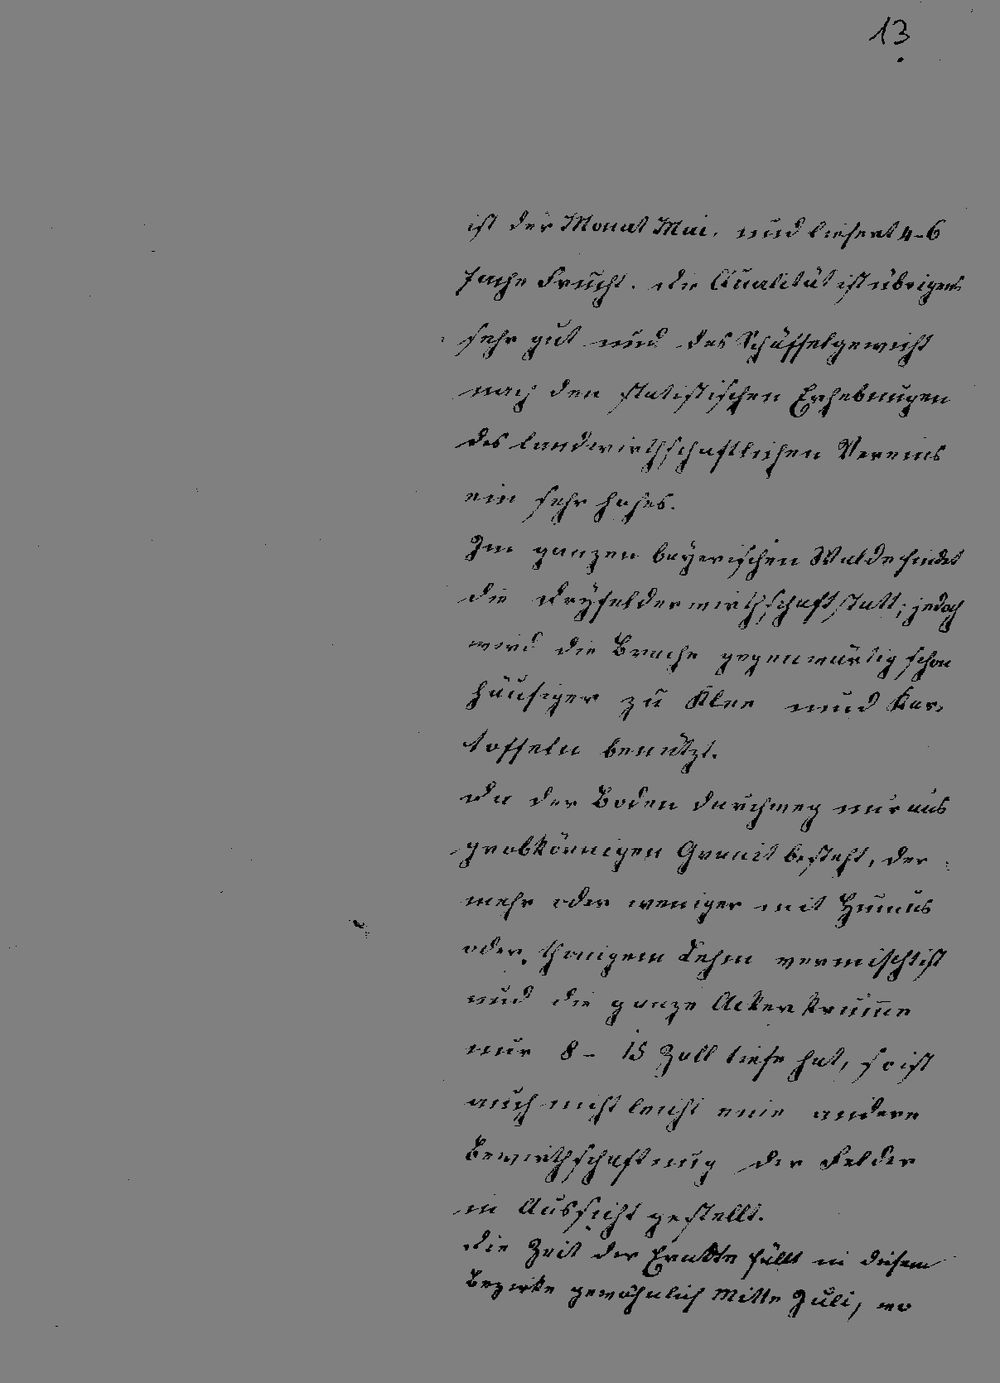 13
ist der Monat Mai, und liefert 4-6
fache Frucht. Die Qualität ist übrigens
sehr gut und das Schäffelgewicht
nach den statistischen Erhebungen
des landwirthschaftlichen Vereins
ein sehr hohes.
Im ganzen bayerischen Walde findet
die Dreyfelderwirthschaft statt; jedoch
wird die Brache gegenwärtig schon
häufiger zu Klee und Kar-
toffeln benützt.
Da der Boden durchweg nur aus
grobkörnigen Granit besteht, der
mehr oder weniger mit Humus
oder thonigem Lehm vermischt ist
und die ganze Ackerkrum̅e
nur 8 - 15 Zoll tiefe hat, so ist
auch nicht leicht eine andere
Bewirthschaftung der Felder
in Aussicht gestellt.
Die Zeit der Erndte fällt in diesem
Bezirke gewöhnlich Mitte Juli, wo